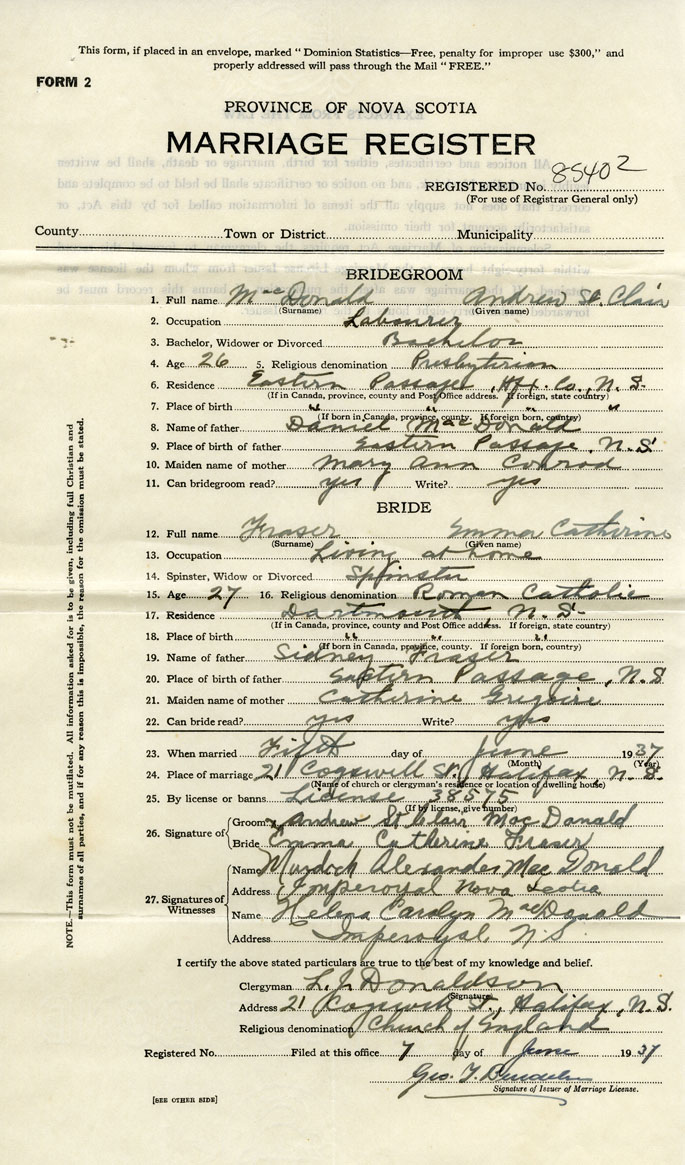 This form, if placed in an envelope, marked "Dominion Statistics—Free, penalty for improper use $300," and
properly addressed will pass through the Mail "FREE."
FORM 2
PROVINCE OF NOVA SCOTIA
MARRIAGE REGISTER
REGISTERED No. 85402
(For use of Registrar General only)
County Town or District Municipality
BRIDEGROOM
1. Full name MacDonald Andrew St. Clair
(Surname) (Given name)
2. Occupation Labourer
3. Bachelor, Widower or Divorced Bachelor
4. Age 26 5. Religious denomination Presbyterian
6. Residence Eastern Passage, Hfx. Co., N. S.
(If in Canada, province, county and Post Office address. If foreign, state country)
7. Place of birth " " " "
(If born in Canada, province, county. If foreign born, country)
8. Name of father Daniel MacDonald
9. Place of birth of father Eastern Passage, N. S.
10. Maiden name of mother Mary Ann Conrod
11. Can bridegroom read? yes Write? yes
BRIDE
12. Full name Fraser Emma Catherine
(Surname) (Given name)
13. Occupation Living at home
14. Spinster, Widow or Divorced Spinster
15. Age 27 16. Religious denomination Roman Catholic
17. Residence Dartmouth N. S.
(If in Canada, province, county and Post Office address. If foreign, state country)
18. Place of birth " " "
(If born in Canada, province, county. If foreign born, country)
19. Name of father Sidney Fraser
20. Place of birth of father Eastern Passage, N. S
21. Maiden name of mother Catherine Gregoire
22. Can bride read? yes Write? yes
23. When married Fifth day of June 1937
(Month) (Year)
24. Place of marriage 21 Cogswell St., Halifax, N. S.
(Name of church or clergyman's residence or location of dwelling house)
25. By license or banns License 38575
(If by license, give number)
26. Signature of Groom Andrew St Clair MacDonald
Bride Emma Catherine Fraser
27. Signatures of Witnesses Name Murdoch Alexander MacDonald
Address Imperoyal Nova Scotia
Name Helena Carolyn MacDonald
Address Imperoyal, N. S
I certify the above stated particulars are true to the best of my knowledge and belief.
Clergyman L. J. Donaldson
(Signature)
Address 21 Cogswell St., Halifax, N. S.
Religious denomination Church of England
Registered No. Filed at this office 7 day of June 1937
Geo. T.
Signature of Issuer of Marriage License.
[SEE OTHER SIDE]
NOTE.—This form must not be mutilated. All information asked for is to be given, including full Christian and
surnames of all parties, and if for any reason this is impossible, the reason for the omission must be stated.